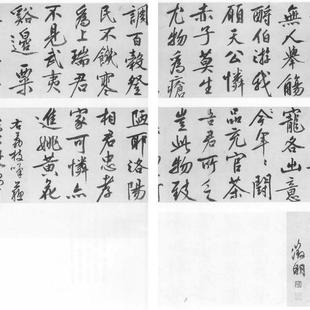 無人舉觴
酹伯游我
願天公憐
赤子莫生
尤物為瘡
調百穀登
民不饑寒
為上瑞君
不見武夷
谿邊粟
寵各出意
今年鬭
品充官茶
吾君所乏
豈此物致
陋耶洛陽
相君忠孝
家可憐亦
進姚黃花
右荔枝嘆蘇
徵明